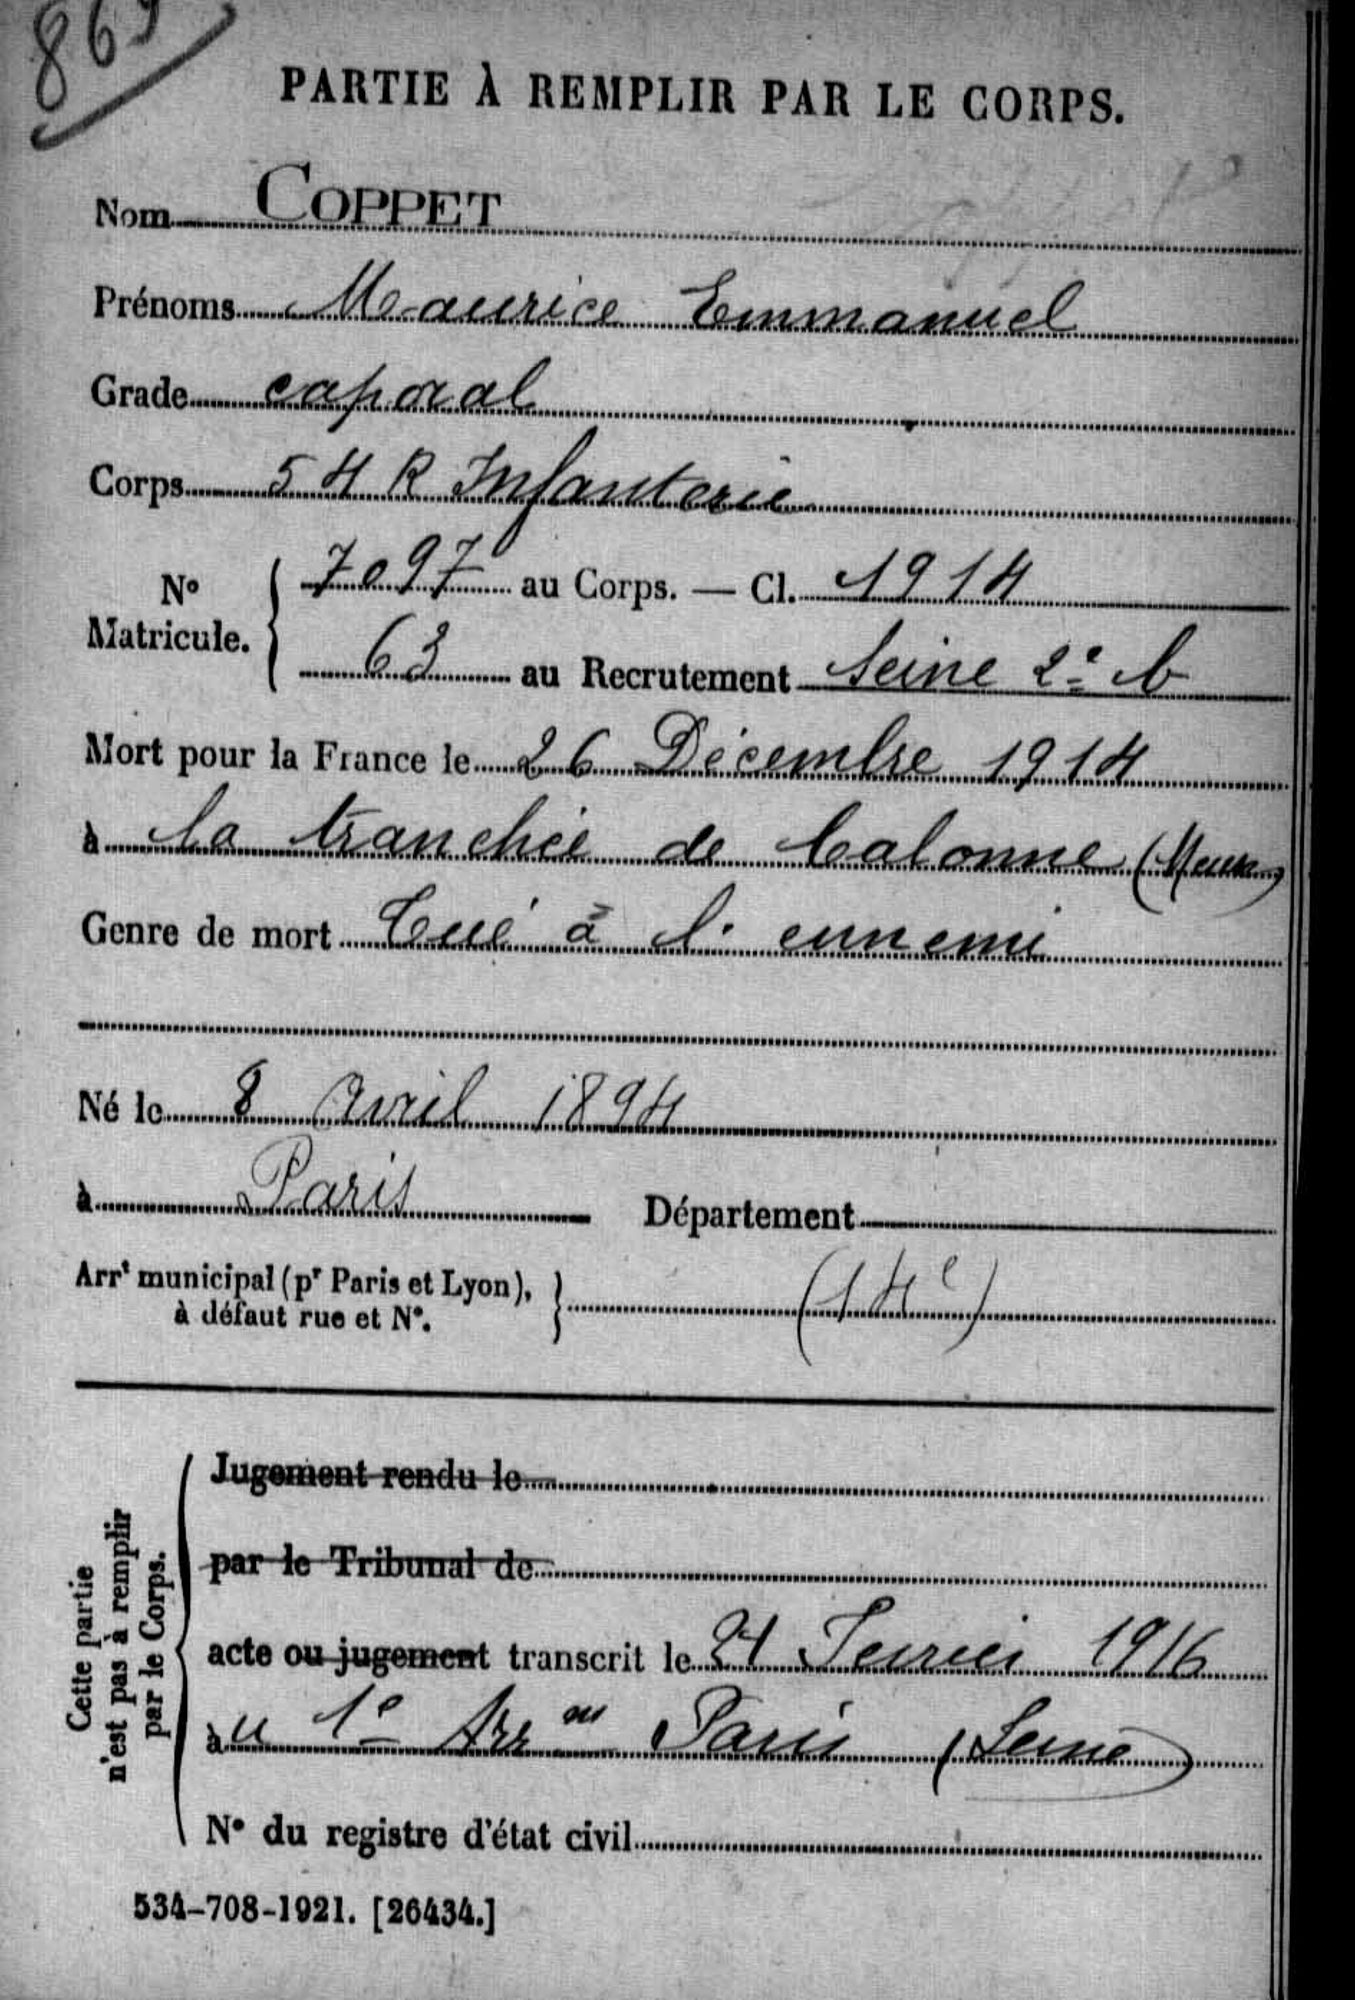 869
PARTIE À REMPLIR PAR LE CORPS.
Nom COPPET
Prénoms Maurice Emmanuel
Grade caporal
Corps 54 R Infanterie
N° Matricule. { 7097 au Corps. — Cl. 1914
63 au Recrutement Seine 2e b
Mort pour la France le 26 Décembre 1914
à la tranchée de Calonne (Meuse)
Genre de mort Tué à l'ennemi
Né le 8 Avril 1894
à Paris Département
Arrt municipal (pr Paris et Lyon), à défaut rue et N°. } (14e)
Cette partie n'est pas à remplir par le Corps.
Jugement rendu le
par le Tribunal de
acte ou jugement transcrit le 21 Fevrier 1916
au 1e Arrm Paris (Seine)
N° du registre d'état civil
534-708-1921. [26434.]